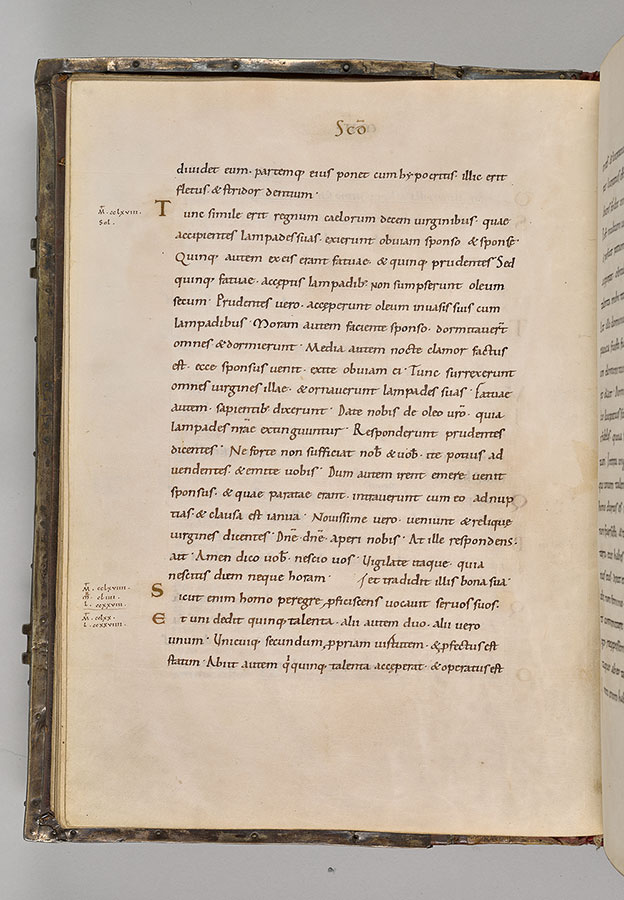 Scō
dividet eum · partemq; eius ponet cum hypocritis · illic erit
fletus & stridor dentium ·
M̄ · cclxviii ·
Sol ·
Tunc simile erit regnum caelorum decem virginibus · quae
accipientes lampades suas · exierunt obviam sponso & sponsę ·
Quinq; autem ex eis erant fatuae · & quinq; prudentes · Sed
quinq; fatuae · acceptis lampadib; non sumpserunt oleum
secum · Prudentes vero · acceperunt oleum in vasis suis cum
lampadibus · Moram autem faciente sponso · dormitaverт̄
omnes & dormierunt · Media autem nocte clamor factus
est · ecce sponsus venit · exite obviam ei · Tunc surrexerunt
omnes virgines illae · & ornaverunt lampades suas · Fatuae
autem · sapientib; dixerunt · Date nobis de oleo vr̄o · quia
lampades nr̄ae extinguuntur · Responderunt prudentes
dicentes · Ne forte non sufficiat nob̄ & vob̄ · ite potius ad
vendentes · & emite vobis · Dum autem irent emere · venit
sponsus · & quae paratae erant · intraverunt cum eo ad nup
tias · & clausa est ianua · Novissime vero · veniunt & reliquę
virgines dicentes · Dn̄e · dn̄e · aperi nobis · At ille respondens ·
ait · Amen dico vob̄ · nescio vos · Vigilate itaque · quia
nescitis diem neque horam · / et tradidit illis bona sua ·
M̄ · cclxviiii ·
m̄ · cliiii ·
L · ccxxviii ·
Sicut enim homo peregre p̱ficiscens vocavit servos suos ·
M̄ · cclxx ·
L · ccxxviiii ·
Et uni dedit quinq; talenta · alii autem duo · alii vero
unum · Unicuiq; secundum p̱priam virtutem · & p̱fectus est
statim · Abiit autem qͥ quinq; talenta acceperat · & operatus est